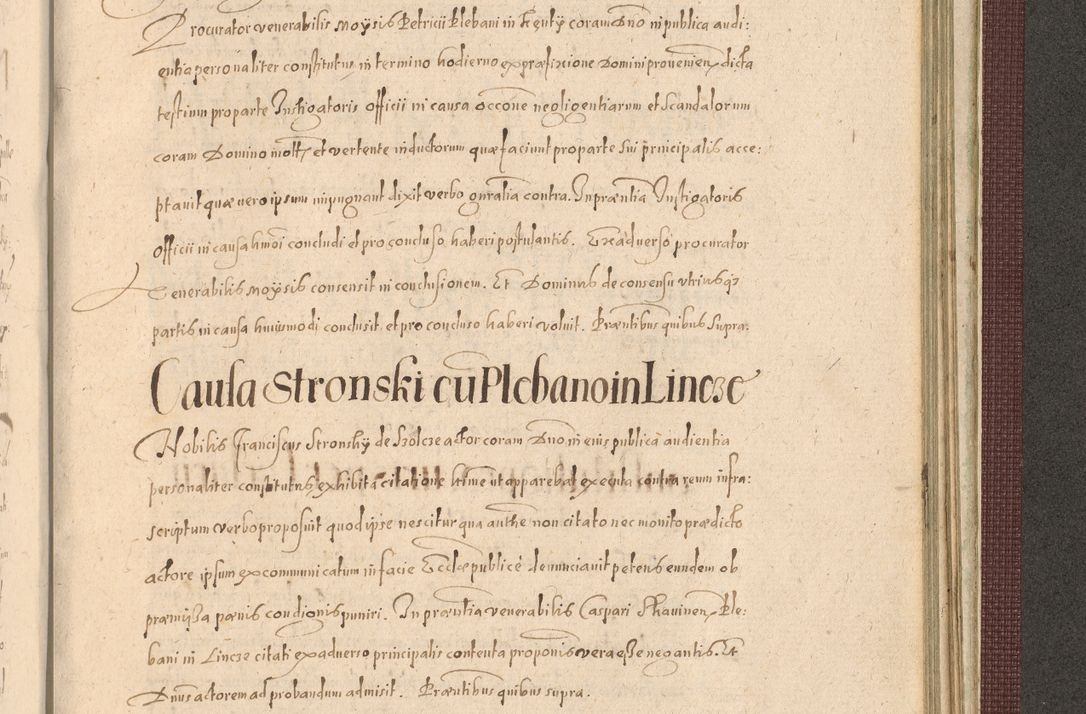 Procurator venerabilis Moysis Petricii Plebani in Kenty coram Dno in publica audi:
entia personaliter constitutus in termino hodierno ex præfixione Domini provenien, dicta
testium pro parte Instigatoris officii in causa occone negligentiarum et scandalorum
coram Domino mott, et vertente inductorum quæ faciunt pro parte sui principalis acce:
ptavit quæ vero ipsum impugnant dixit verbo gnralia contra. In præntia Instigatoris
officii in causa hmoi concludi et pro concluso haberi postulantis. Ex adverso procurator
Venerabilis Moysis consensit in conclusionem. Et Dominus de consensu utriusqz
partis in causa huiusmodi conclusit et pro concluso haberi voluit. Præntibus quibus supra.
Causa Stronski cũ Plebano in Lincze
Nobilis Franciscus Stronsky de Szolcze actor coram Dno in eius publica audientia
personaliter constitutus exhibita citatione ltime ut apparebat executa contra reum infra:
scriptum verbo proposuit quod ipse nescitur qua authe non citato nec monito prædicto
actore ipsum excommunicatum in facie Ecclæ publice denunciavit petens eundem ob
præmissa pænis condignis puniri. In præntia venerabilis Caspari Skavinen, Ple:
bani in Lincze citati ex adverso principalis contenta propositionis vera esse negantis. Et
Dnus actorem ad probandum admisit. Præntibus quibus supra.